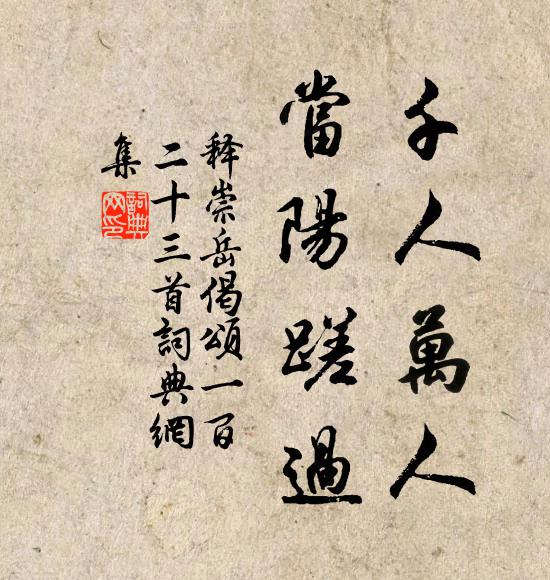 千人萬人
當陽蹉過
释崇岳偈頌一百
二十三首詞典網
集
詞典
网印